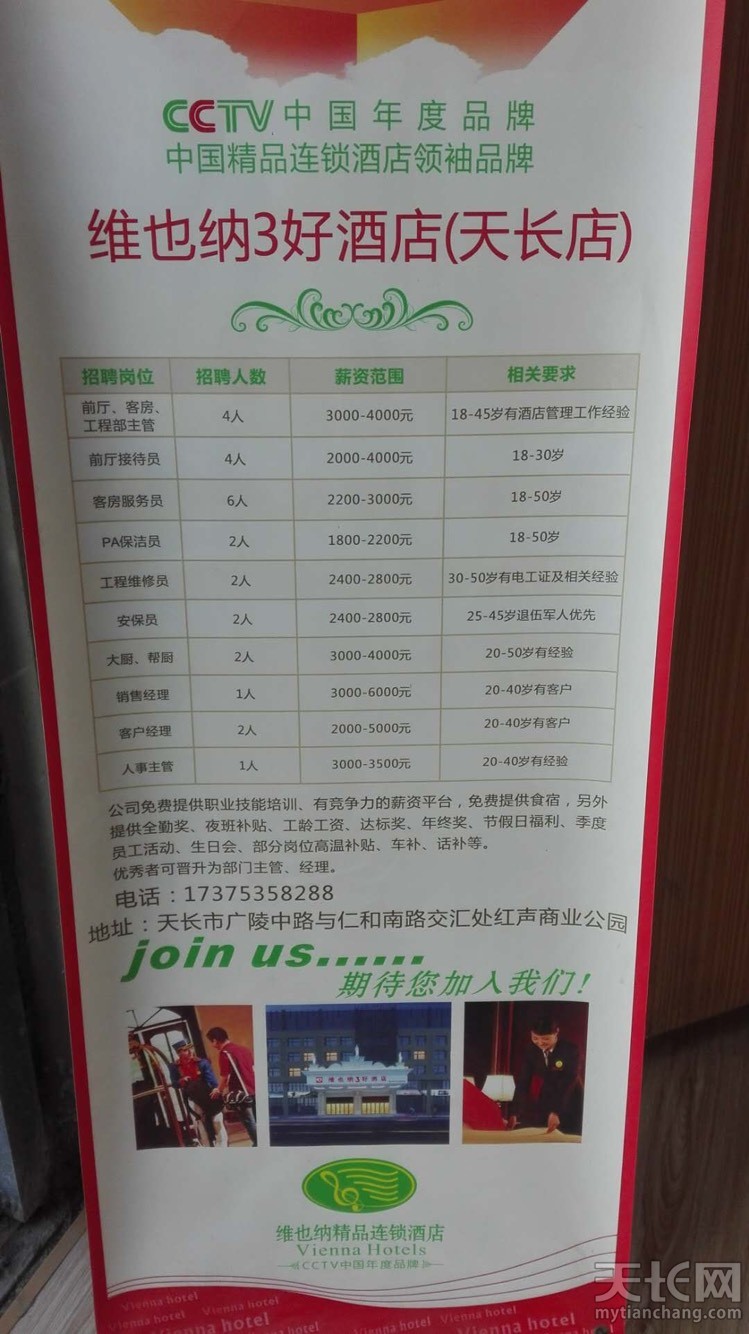 CCTV中国年度品牌
中国精品连锁酒店领袖品牌
维也纳3好酒店(天长店)
招聘岗位 招聘人数 薪资范围 相关要求
前厅、客房、
工程部主管 4人 3000-4000元 18-45岁有酒店管理工作经验
前厅接待员 4人 2000-4000元 18-30岁
客房服务员 6人 2200-3000元 18-50岁
PA保洁员 2人 1800-2200元 18-50岁
工程维修员 2人 2400-2800元 30-50岁有电工证及相关经验
安保员 2人 2400-2800元 25-45岁退伍军人优先
大厨、帮厨 2人 3000-4000元 20-50岁有经验
销售经理 1人 3000-6000元 20-40岁有客户
客户经理 2人 2000-5000元 20-40岁有客户
人事主管 1人 3000-3500元 20-40岁有经验
公司免费提供职业技能培训、有竞争力的薪资平台，免费提供食宿，另外
提供全勤奖、夜班补贴、工龄工资、达标奖、年终奖、节假日福利、季度
员工活动、生日会、部分岗位高温补贴、车补、话补等。
优秀者可晋升为部门主管、经理。
电话：17375358288
地址：天长市广陵中路与仁和南路交汇处红声商业公园
join us......
期待您加入我们!
维也纳3好酒店
维也纳精品连锁酒店
Vienna Hotels
CCTV中国年度品牌
Vienna hotel
Vienna hotel Vienna hotel
Vienna hotel Vienna hotel
天长网
mytianchang.com